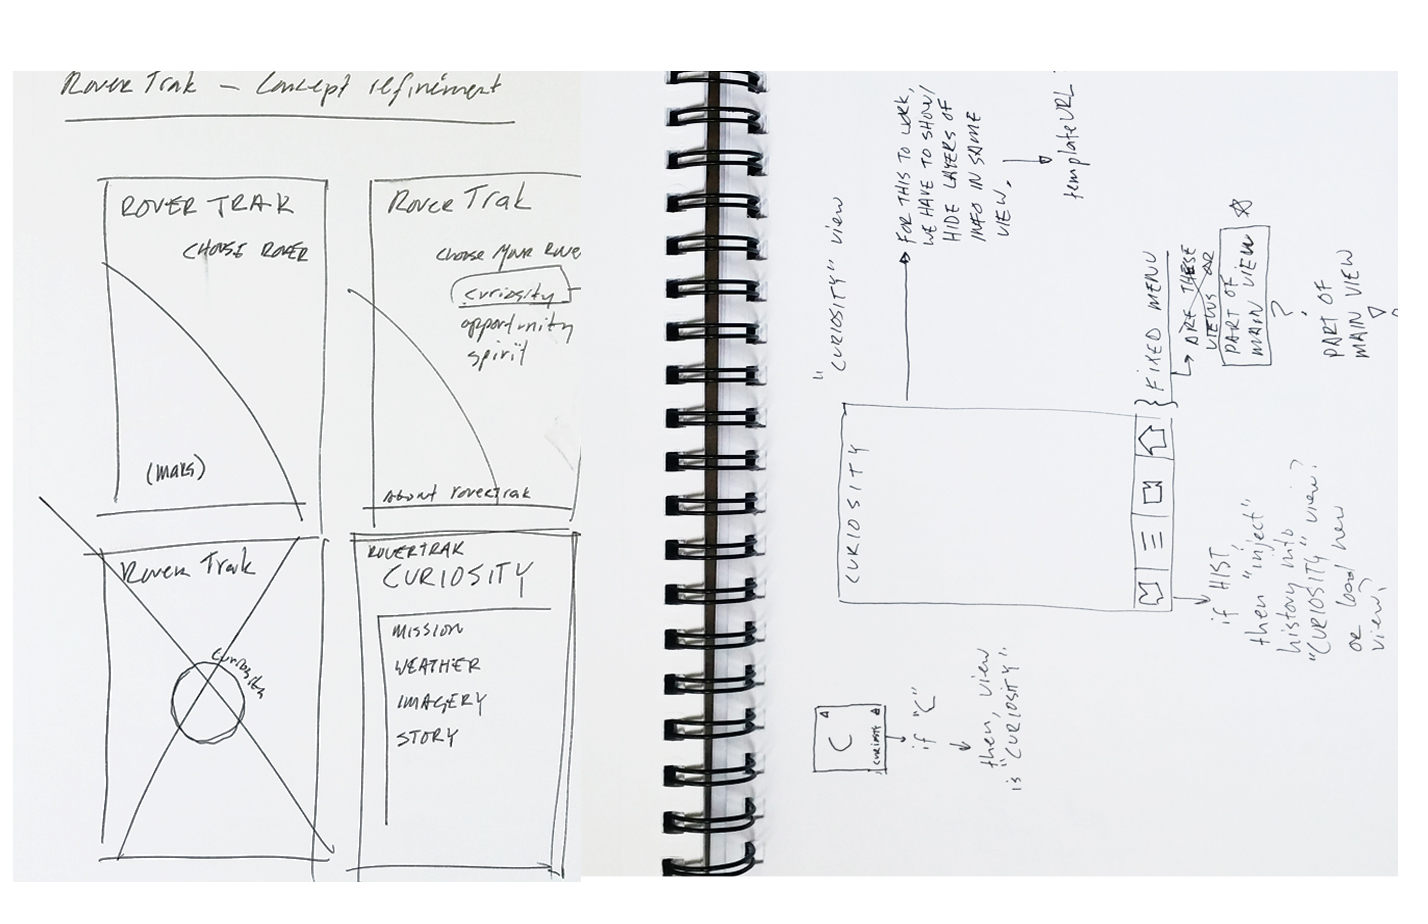 Rover Trak — Concept refinement
ROVER TRAK
CHOOSE ROVER
(MARS)
Rover Trak
Choose Your Rove
curiosity
opportunity
spirit
About rovertrak
Rover Trak
curiosity
ROVERTRAK
CURIOSITY
MISSION
WEATHER
IMAGERY
STORY
"CURIOSITY" view
FOR THIS TO WORK,
WE HAVE TO SHOW/
HIDE LAYERS OF
INFO IN SAME
VIEW.
templateURL
CURIOSITY
} FIXED MENU
ARE THESE
VIEWS OR
PART OF
MAIN VIEW
?
PART OF
MAIN VIEW
if HIST
then "inject"
history into
"CURIOSITY" view?
or load new
view?
C
CURIOSITY
if "C"
then, view
is "CURIOSITY".